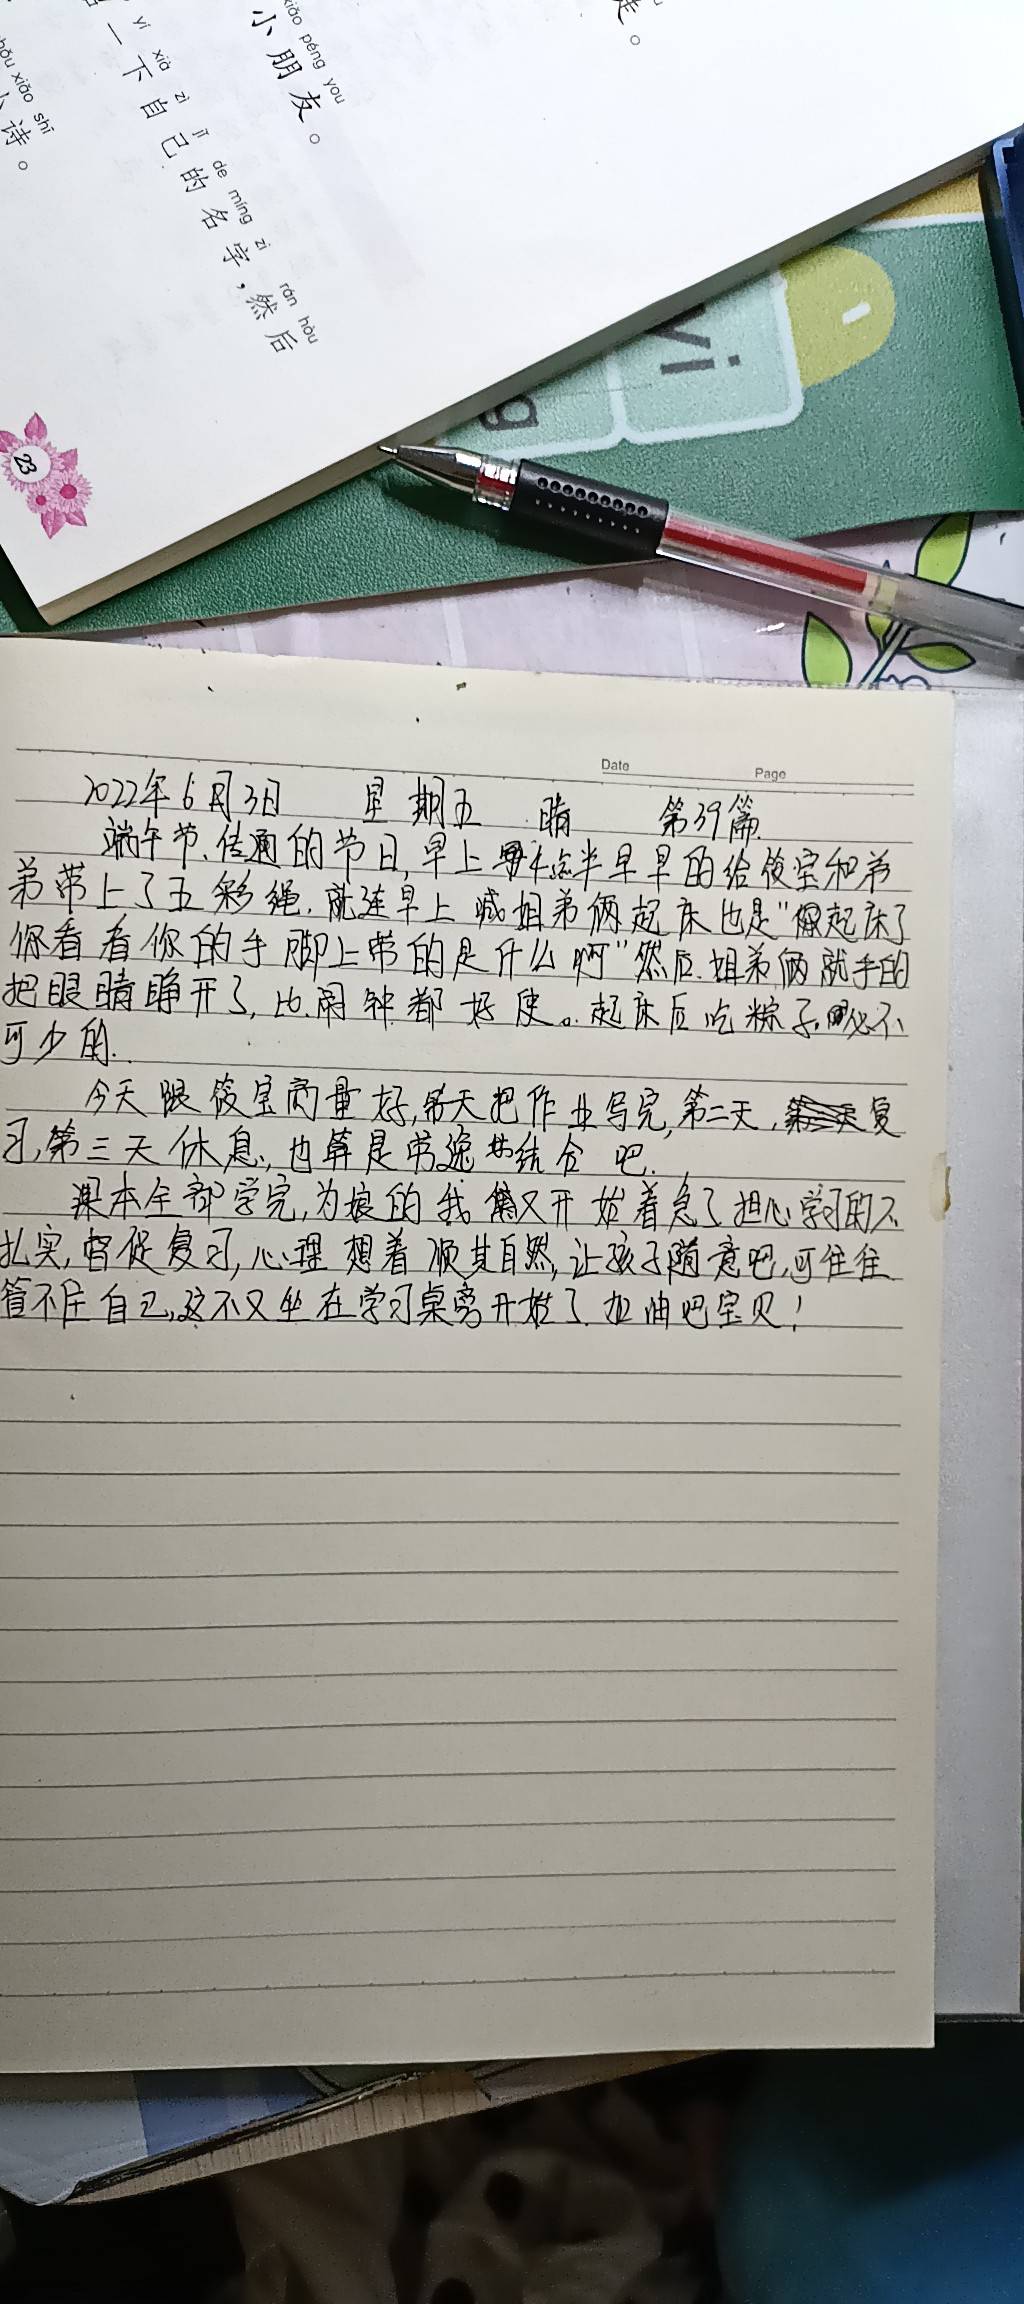 xiǎo péng you
小朋友。
走。
yí xià zì jǐ de míng zi rán hòu
一下自己的名字,然后
xiǎo shī
小诗。
23
vi
g
Date
Page
2022年6月3日 星期五 晴 第39篇
端午节、传通的节日,早上4点半早早的给筱宝和弟
弟带上了五彩绳.就连早上喊姐弟俩起床也是"起床了
你看看你的手脚上带的是什么啊"然后.姐弟俩就手的
把眼睛睁开了,比.闹钟都好使。起床后吃粽子.必不
可少的.
今天跟筱宝商量好,第天把作业写完,第二天,复
习,第三天休息,也算是劳逸结合吧.
课本全部学完,为娘的我又开始着急了担心学习的不
扎实,督促复习,心理想着顺其自然,让孩子随意吧,可往往
管不住自己,这不又坐在学习桌旁开始了.加油吧宝贝!